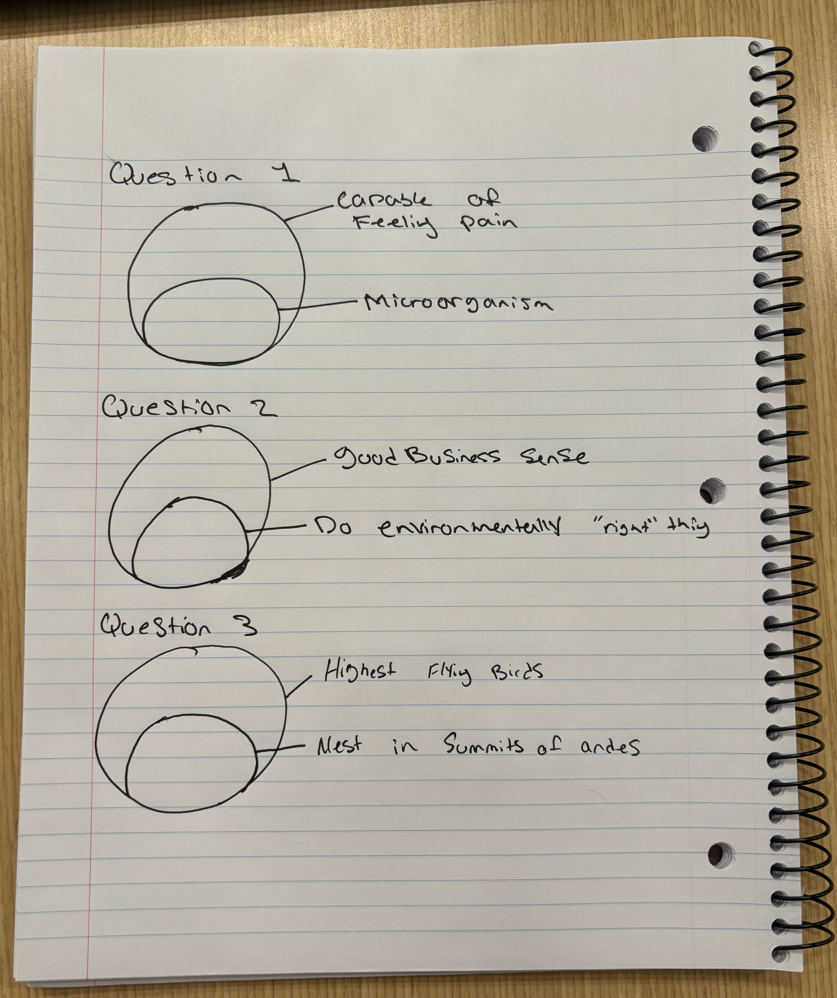 Question 1
Capable of
Feeling pain
Microorganism
Question 2
good Business sense
Do environmentally "right" thing
Question 3
Highest Flying Birds
Nest in Summits of andes